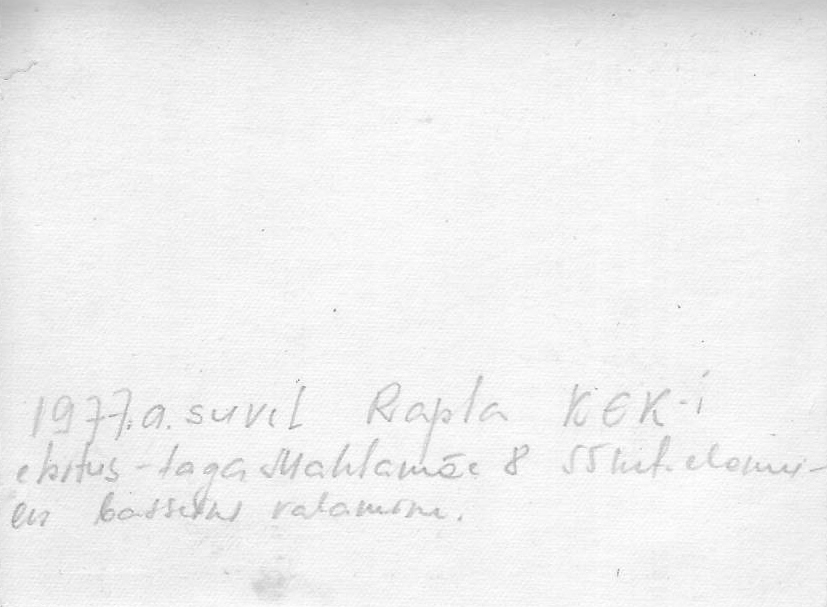 1977.a. suvil Rapla KEK-i
ehitus - taga Mahlamäe 8 55 krt. elamu-
en basseini valamine.